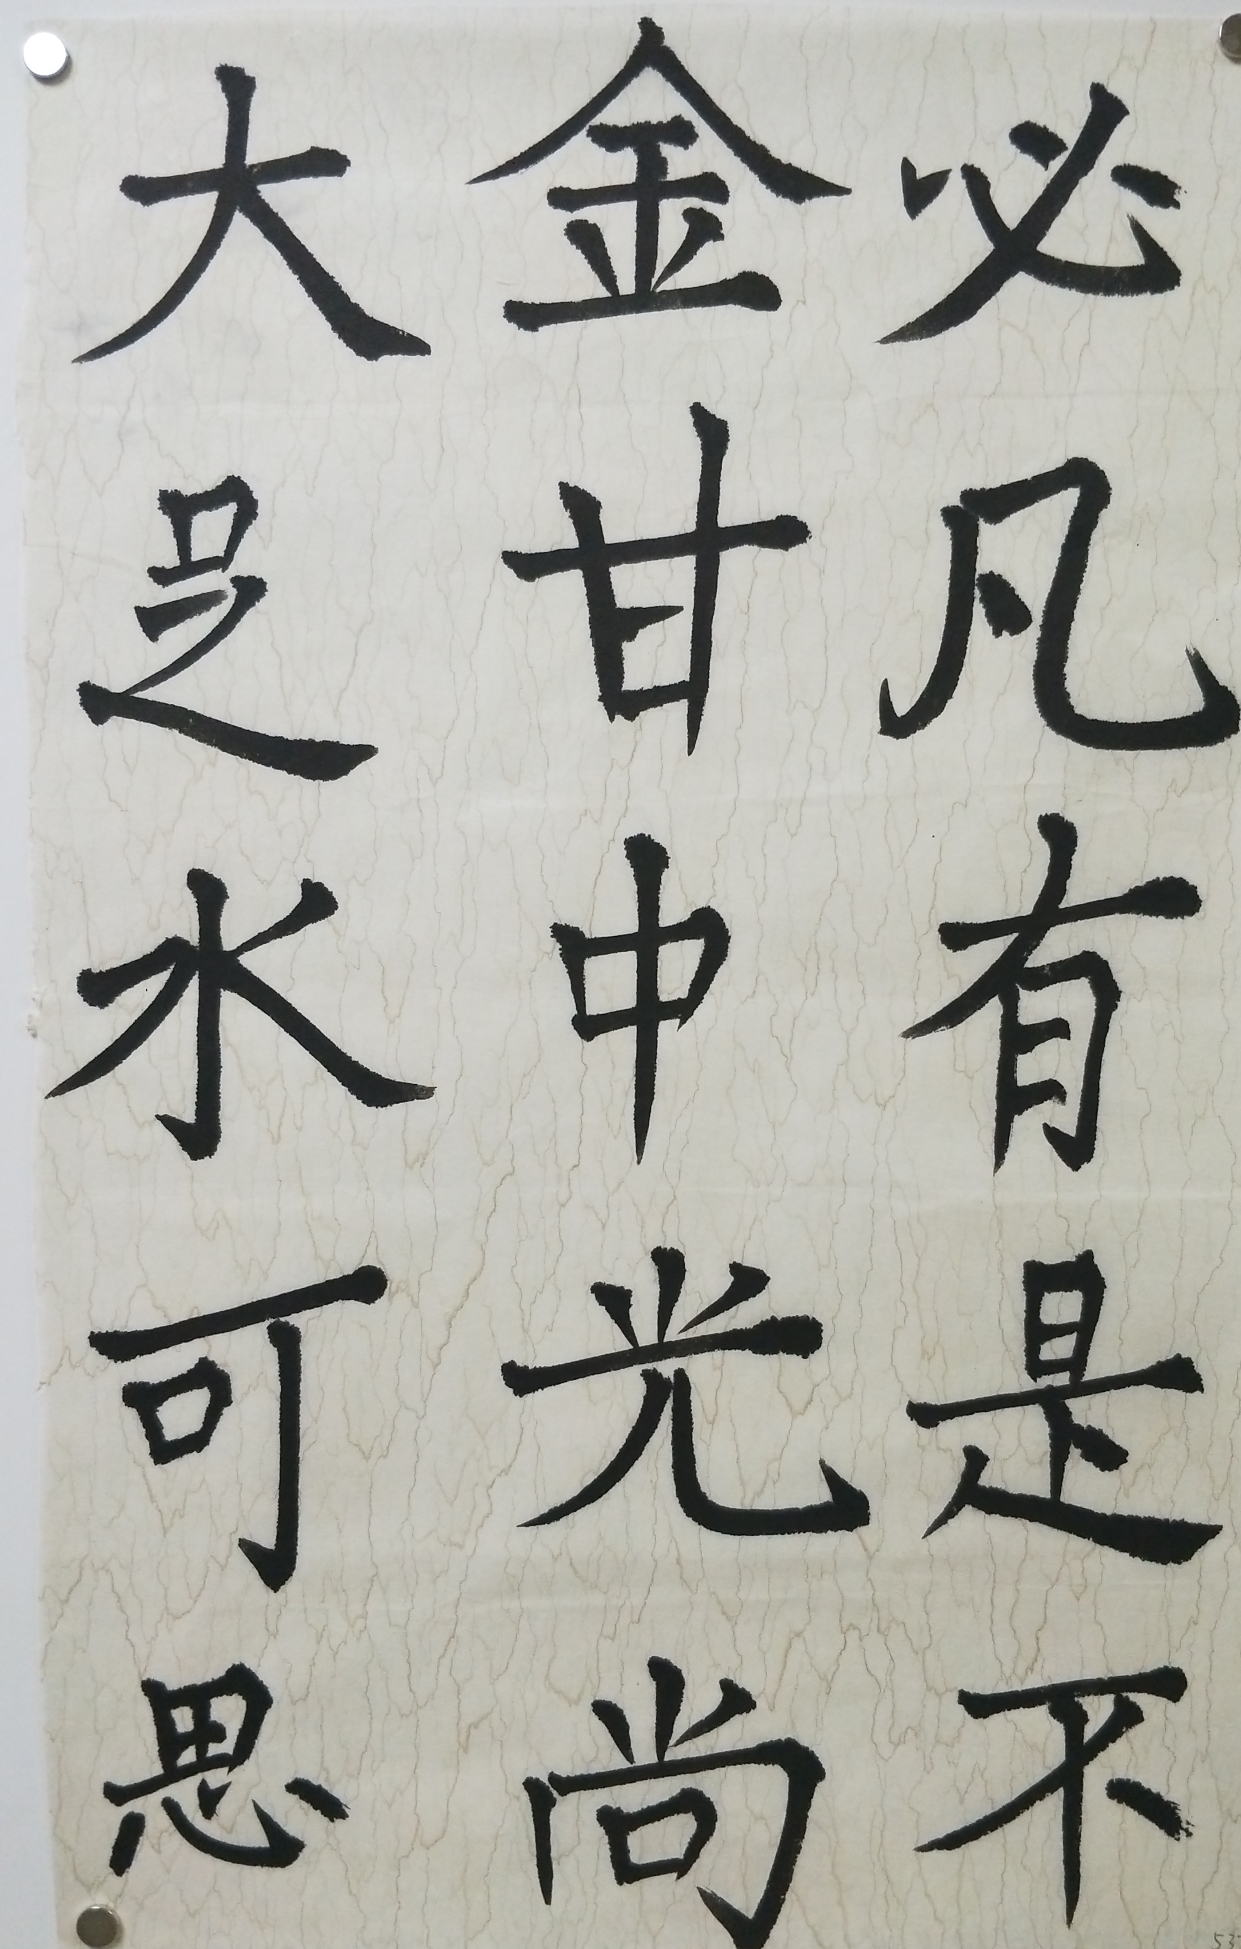 必凡有是不
金甘中光尚
大足水可思
53